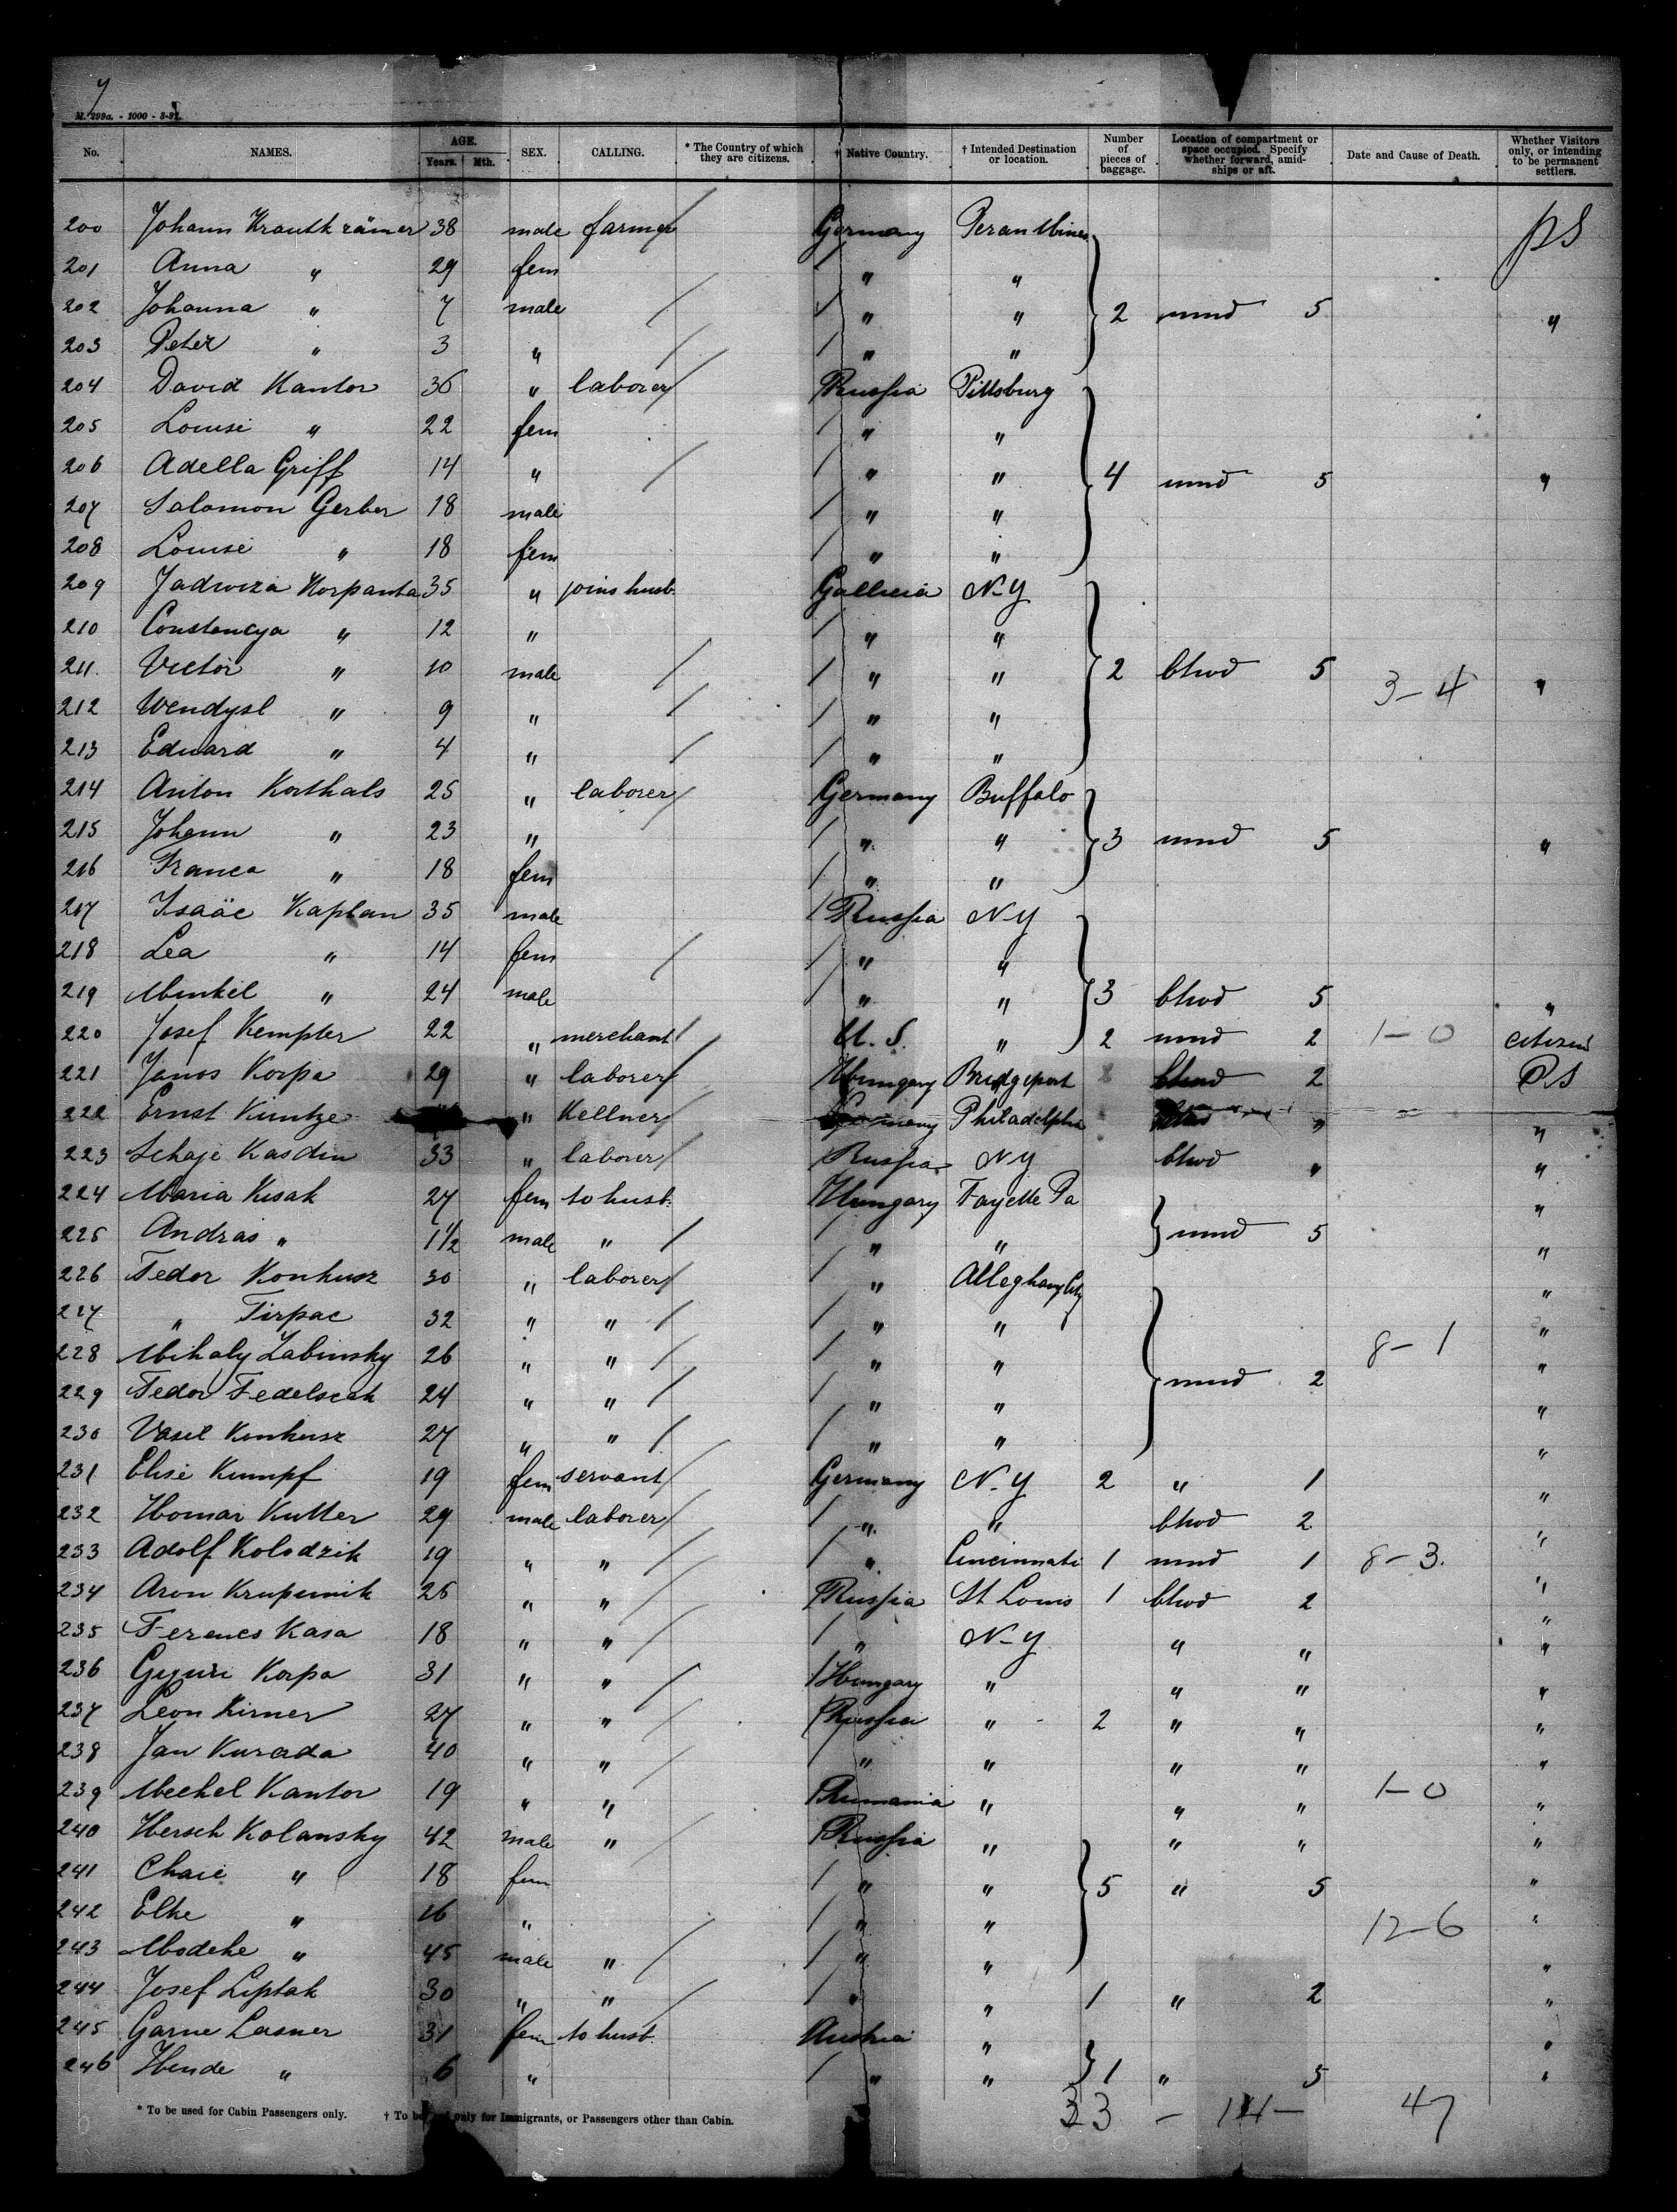 7
M. 299a. - 1000 - 3-91.
No. NAMES. AGE. Years. Mth. SEX. CALLING. * The Country of which they are citizens. † Native Country. † Intended Destination or location. Number of pieces of baggage. Location of compartment or space occupied. Specify whether forward, amidships or aft. Date and Cause of Death. Whether Visitors only, or intending to be permanent settlers.
200 Johann Krauthrämer 38 male farmer Germany PS
201 Anna " 29 fem " "
202 Johanna " 7 male " " 2 mmd 5 "
203 Peter " 3 " " "
204 David Kantor 36 " laborer Russia Pittsburg
205 Louise " 22 fem " "
206 Adella Griff 14 " " " 4 mmd 5 "
207 Salomon Gerber 18 male " "
208 Louise " 18 fem " "
209 Jadwiza Korpanta 35 " joins husb. Gallicia N-Y
210 Constancya " 12 " " "
211. Victor " 10 male " " 2 bhwd 5 3-4 "
212 Wendysl " 9 " " "
213 Eduard " 4 " " "
214 Anton Korthals 25 " laborer Germany Buffalo
215 Johann " 23 " " " 3 mmd 5 "
216 Franca " 18 fem " "
217 Isaäc Kaplan 35 male Russia N-Y
218 Lea " 14 fem " "
219 Minkel " 24 male " " 3 bhwd 5 "
220 Josef Kempter 22 " merchant U. S. " 2 mmd 2 1-0 citizen
221 Janos Korpa 29 " laborer Hungary Bridgeport bhwd 2 PS
222 Ernst Kuntze " Kellner Germany Philadelphia " "
223 Schaje Kasdin 33 " laborer Russia N Y bhwd " "
224 Maria Kisak 27 fem to husb. Hungary Fayette Pa "
225 Andras " 1 1/2 male " " " mmd 5 "
226 Fedor Konhusz 30 " laborer " Alleghany City "
227 " Tirpac 32 " " " " "
228 Mihaly Zabinsky 26 " " " " 8-1 "
229 Fedor Fedelscak 24 " " " " mmd 2 "
230 Vasil Konhusz 27 " " " " "
231 Elise Kumpf 19 fem servant Germany N-Y 2 " 1 "
232 Homar Kutter 29 male laborer " " bhwd 2 "
233 Adolf Kolodzik 19 " " " Cincinnati 1 mmd 1 8-3. "
234 Aron Krupinnik 26 " " Russia St Louis 1 bhwd 2 "
235 Ferencs Kasa 18 " " " N-Y " " "
236 Gyuri Korpa 31 " " Hungary " " " "
237 Leon Kirner 27 " " Russia " 2 " " "
238 Jan Kurada 40 " " " " " " "
239 Mechel Kantor 19 " " Rumania " " " 1-0 "
240 Hersch Kolansky 42 male " Russia " " " "
241 Chaie " 18 fem " " 5 " 5 "
242 Elke " 16 " " " 12-6 "
243 Modche " 45 male " " " "
244 Josef Liptak 30 " " " " 1 " 2 "
245 Garne Lasner 31 fem to husb. Austria " "
246 Hende " 6 " " " 1 " 5 "
33 - 14 - 47
* To be used for Cabin Passengers only. † To be only for Immigrants, or Passengers other than Cabin.